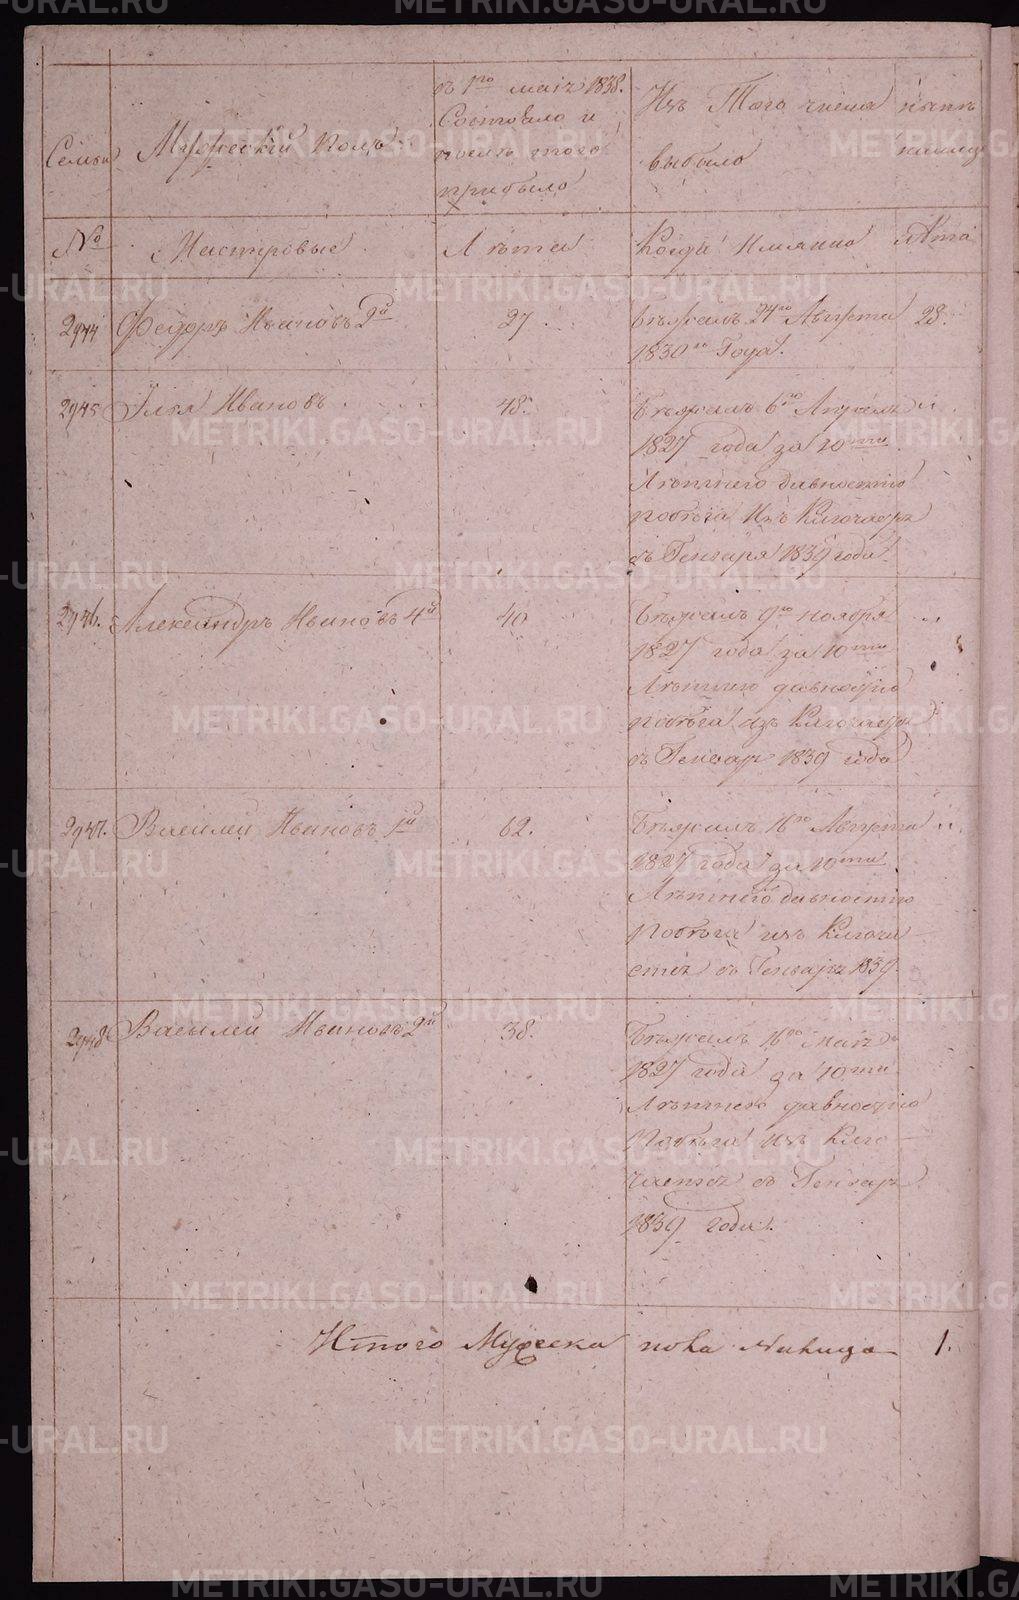 Семьи
Мужескій полъ
съ 1го маія 1838.
Состояло и
послѣ того
прибыло
Изъ Того числа
выбыло
нынѣ
налицо
№
Настровые
Лѣта
Когда Имянно
лѣта
2944
Федоръ Ивановъ 2й
27
Бѣжалъ 24го Августа
1830го Года.
28.
2945
Илья Ивановъ
48.
Бѣжалъ 6го Апрѣля
1827 года за 10ти
Лѣтнего давностію
побѣга Изъ Ключаетъ
съ Генваря 1839 года
„
2946.
Александръ Ивановъ 4й
40
Бѣжалъ 9го ноября
1827 года за 10ти
Лѣтнею давностію
побѣга изъ Ключается
съ Генвар 1839 года
„
2947.
Василей Ивановъ 1й
62.
Бѣжалъ 16го Августа
1827 года за 10ти
Лѣтнего давностію
Побѣга изъ Ключа
ется съ Генваря 1839.
„
2948
Василей Ивановъ 2й
38.
Бѣжалъ 16го маія
1827 года за 10ти
Лѣтнею давностію
Побѣга изъ Клю
чается съ Генваря
1839 года.
„
Итого Мужеска пола Налицо 1.
METRIKI.GASO-URAL.RU